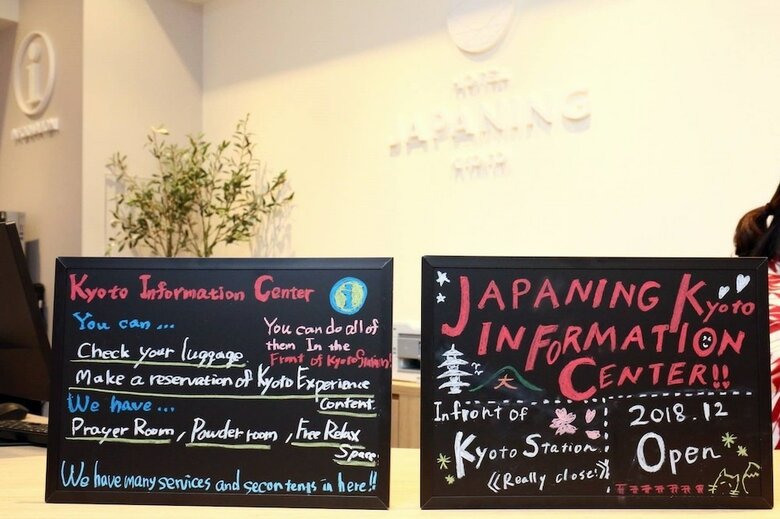 i
JAPANING
Kyoto Information Center
i
You can ...
You can do all of
them In the
Front of Kyoto Station!
Check your luggage.
Make a reservation of Kyoto Experience
Content.
We have ...
Prayer Room, Powder room, Free Relax
Space.
We have many services and secontents in here!!
JAPANING Kyoto
INFORMATION
CENTER!!
大
Infront of
Kyoto Station
《Really close!》
2018.12
Open